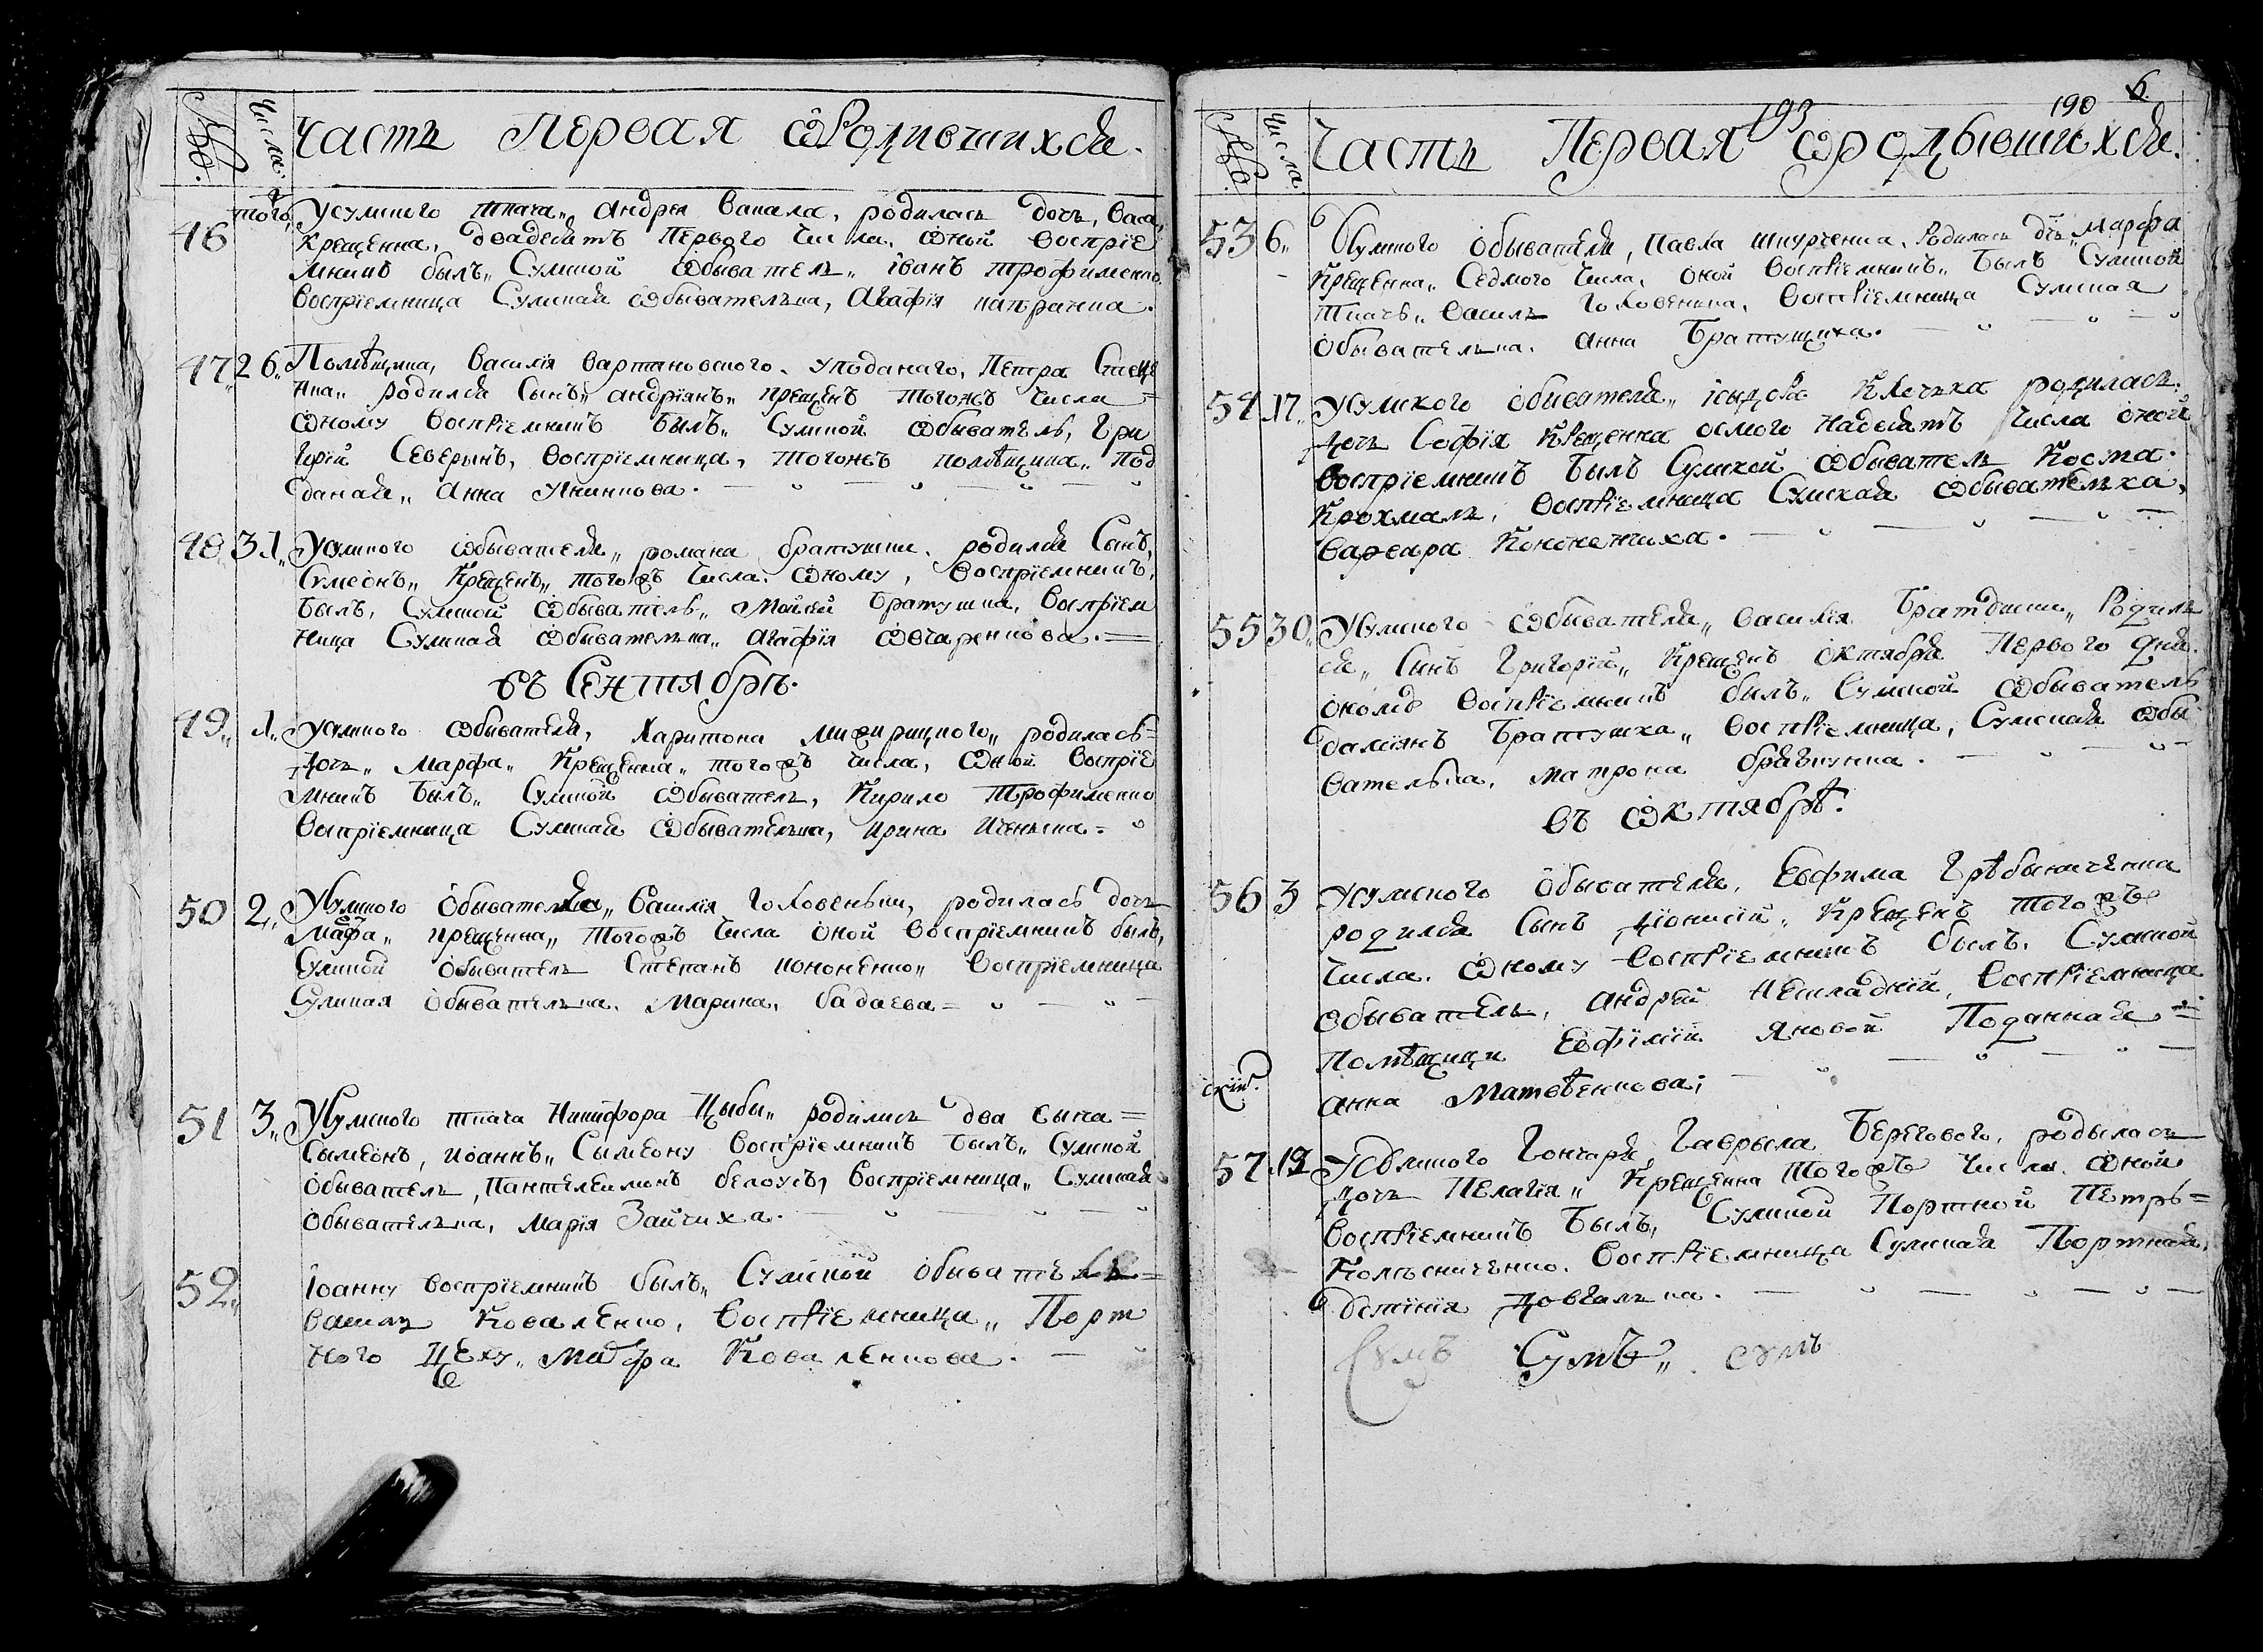 № Числа. Часть Первая ѿ Родившихся.
46 того Усумского ткача„ Андрея Вакала, родилась дочь, Васса,
крещенна, двадесятъ Перваго Числа, ѡной восприе
мникъ былъ„ Сумской ѡбыватель„ Іванъ Трофименко,
восприемница Сумская ѡбывателка, Агафія
47 26„ Помѣщика, Василія Вартановского. уподаного, Петра Стеце
нка„ родился Сынъ„ андріянъ„ крещенъ тогожъ числа =
ѡному восприемникъ былъ„ Сумской ѡбыватель, Гри
горій Северынъ, восприемница, тогожъ помѣщика„ под
даная„ Анна
48„ 31„ Усумского ѡбывателя„ романа братушки. родился Сынъ,
Сумеонъ„ Крещенъ„ тогожъ Числа. ѡному, восприемникъ,
былъ, Сумской ѡбыватель„ Мойсей Братушка, восприем
ница Сумская ѡбывателька„ Агафія ѡвчаренкова. =
въ Сентябрѣ.
49„ 1„ Усумского ѡбывателя, Харитона родилась =
дочь„ Марфа„ Крещенна„ тогожъ числа, ѡной восприе
мникъ былъ„ Сумской ѡбыватель, Кирило Трофименко
восприемница Сумская ѡбывателька, Ирина =
50 2„ Усумского Обывателя„ Василія Головенки, родилась дочь
Марфа„ крещенна„ тогожъ числа оной восприемникъ былъ,
Сумской Обыватель Степанъ кононенко„ восприемница
Сумская Обывателька. Марина, бадаева =
51 3„ Усумского ткача Никифора Цыбы„ родились два сына =
Сымеонъ, иоаннъ„ Сымеону восприемникъ былъ„ Сумской
Обыватель, Пантелеимонъ белоусъ, восприемница„ Сумская
Обывателька, Марія Зайчиха.
52„ Іоанну восприемникъ былъ„ Сумской обыватель =
Василь Коваленко, восприемница„ Порт
ного Цеху„ Марфа Коваленкова.
193 190 6
№ Числа Часть Первая ѿ родывшихся.
53 6„ Усумского Обывателя, Павла шкурченка, Родилась дчь„ Марфа
Крещенна„ Седмого числа, оной восприемникъ„ былъ Сумской
ткачъ„ Василь Головенька, восприемница Сумская
Обывателька. Анна Братущиха.
54 17„ Усумского Обивателя„ Клочка родилась.
дочь Софія Крещенна осмого надесятъ Числа оной
восприемникъ былъ Сумской ѡбыватель Косма.
Крохмаль, восприемница Сумская ѡбывателька,
Варвара Кононенчиха.
55 30„ Усумского ѡбывателя„ Василія Братушки„ Родил
ся„ Синъ Григорій„ Крещенъ Октября Перваго дня.
оному восприемникъ билъ„ Сумской ѡбыватель
даміянъ Братушка„ восприемница, Сумская ѡбы
вателька, матрона
въ ѡктябрѣ.
56 3 Усумского Обывателя, Евфима Грѣбиниченка
родился Сынъ Діонисій„ Крещенъ тогожъ
числа. ѡному восприемникъ былъ. Сумской
обыватель, андрей восприемница
Помѣщици Евфиміи Яновой Поданная =
Анна Матвѣенкова;
57 12 Усумского Гончаря, Гаврыла Берегового, родылась
дочь Пелагія„ Крещенна тогожъ числа. ѡной
восприемникъ былъ, Сумской Портной Петръ =
Колесниченко. восприемница Сумская Портная,
Довгалька.
Сумъ Сумъ„ сумъ